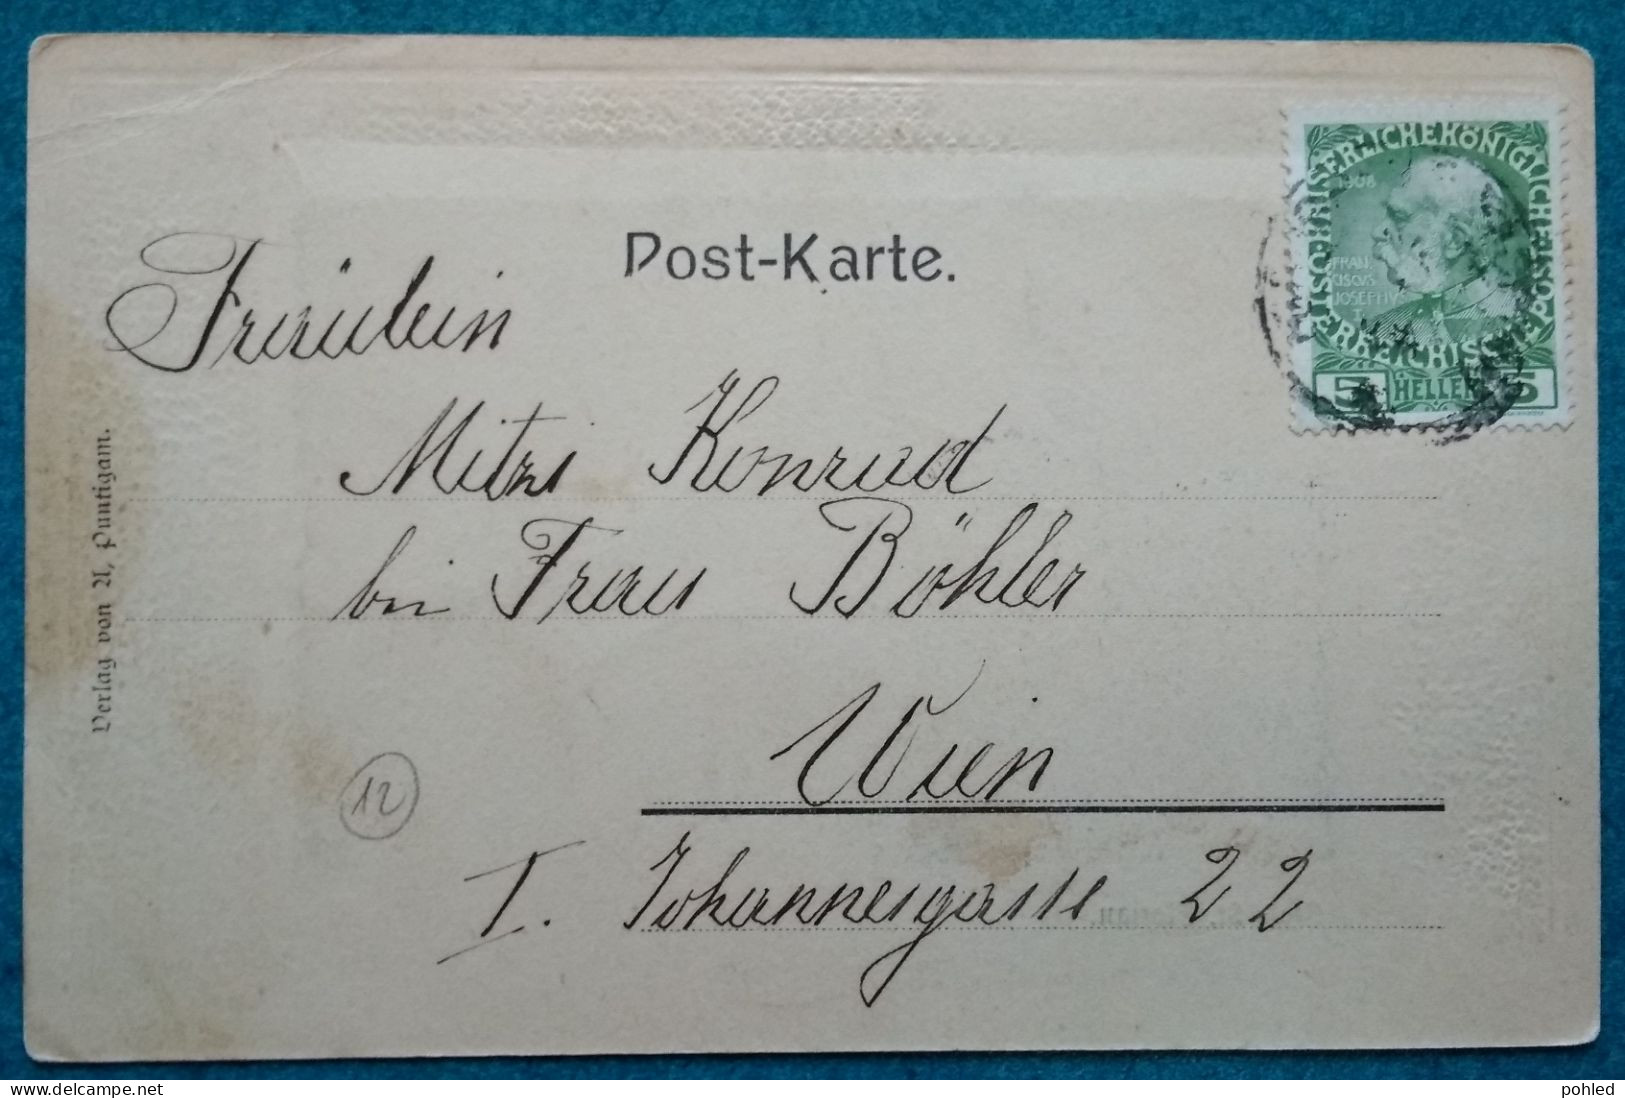 Post-Karte.
KAISERLICHE KÖNIGLICHE
ÖSTERREICHISCHE POST
1908
FRAN
CISCVS
JOSEPHVS
5 HELLER 5
Fräulein
Mitzi Konrad
bei Frau Böhler
Wien
I. Johannesgasse 22
12
Verlag von A, Puntigam.
delcampe.net
pohled